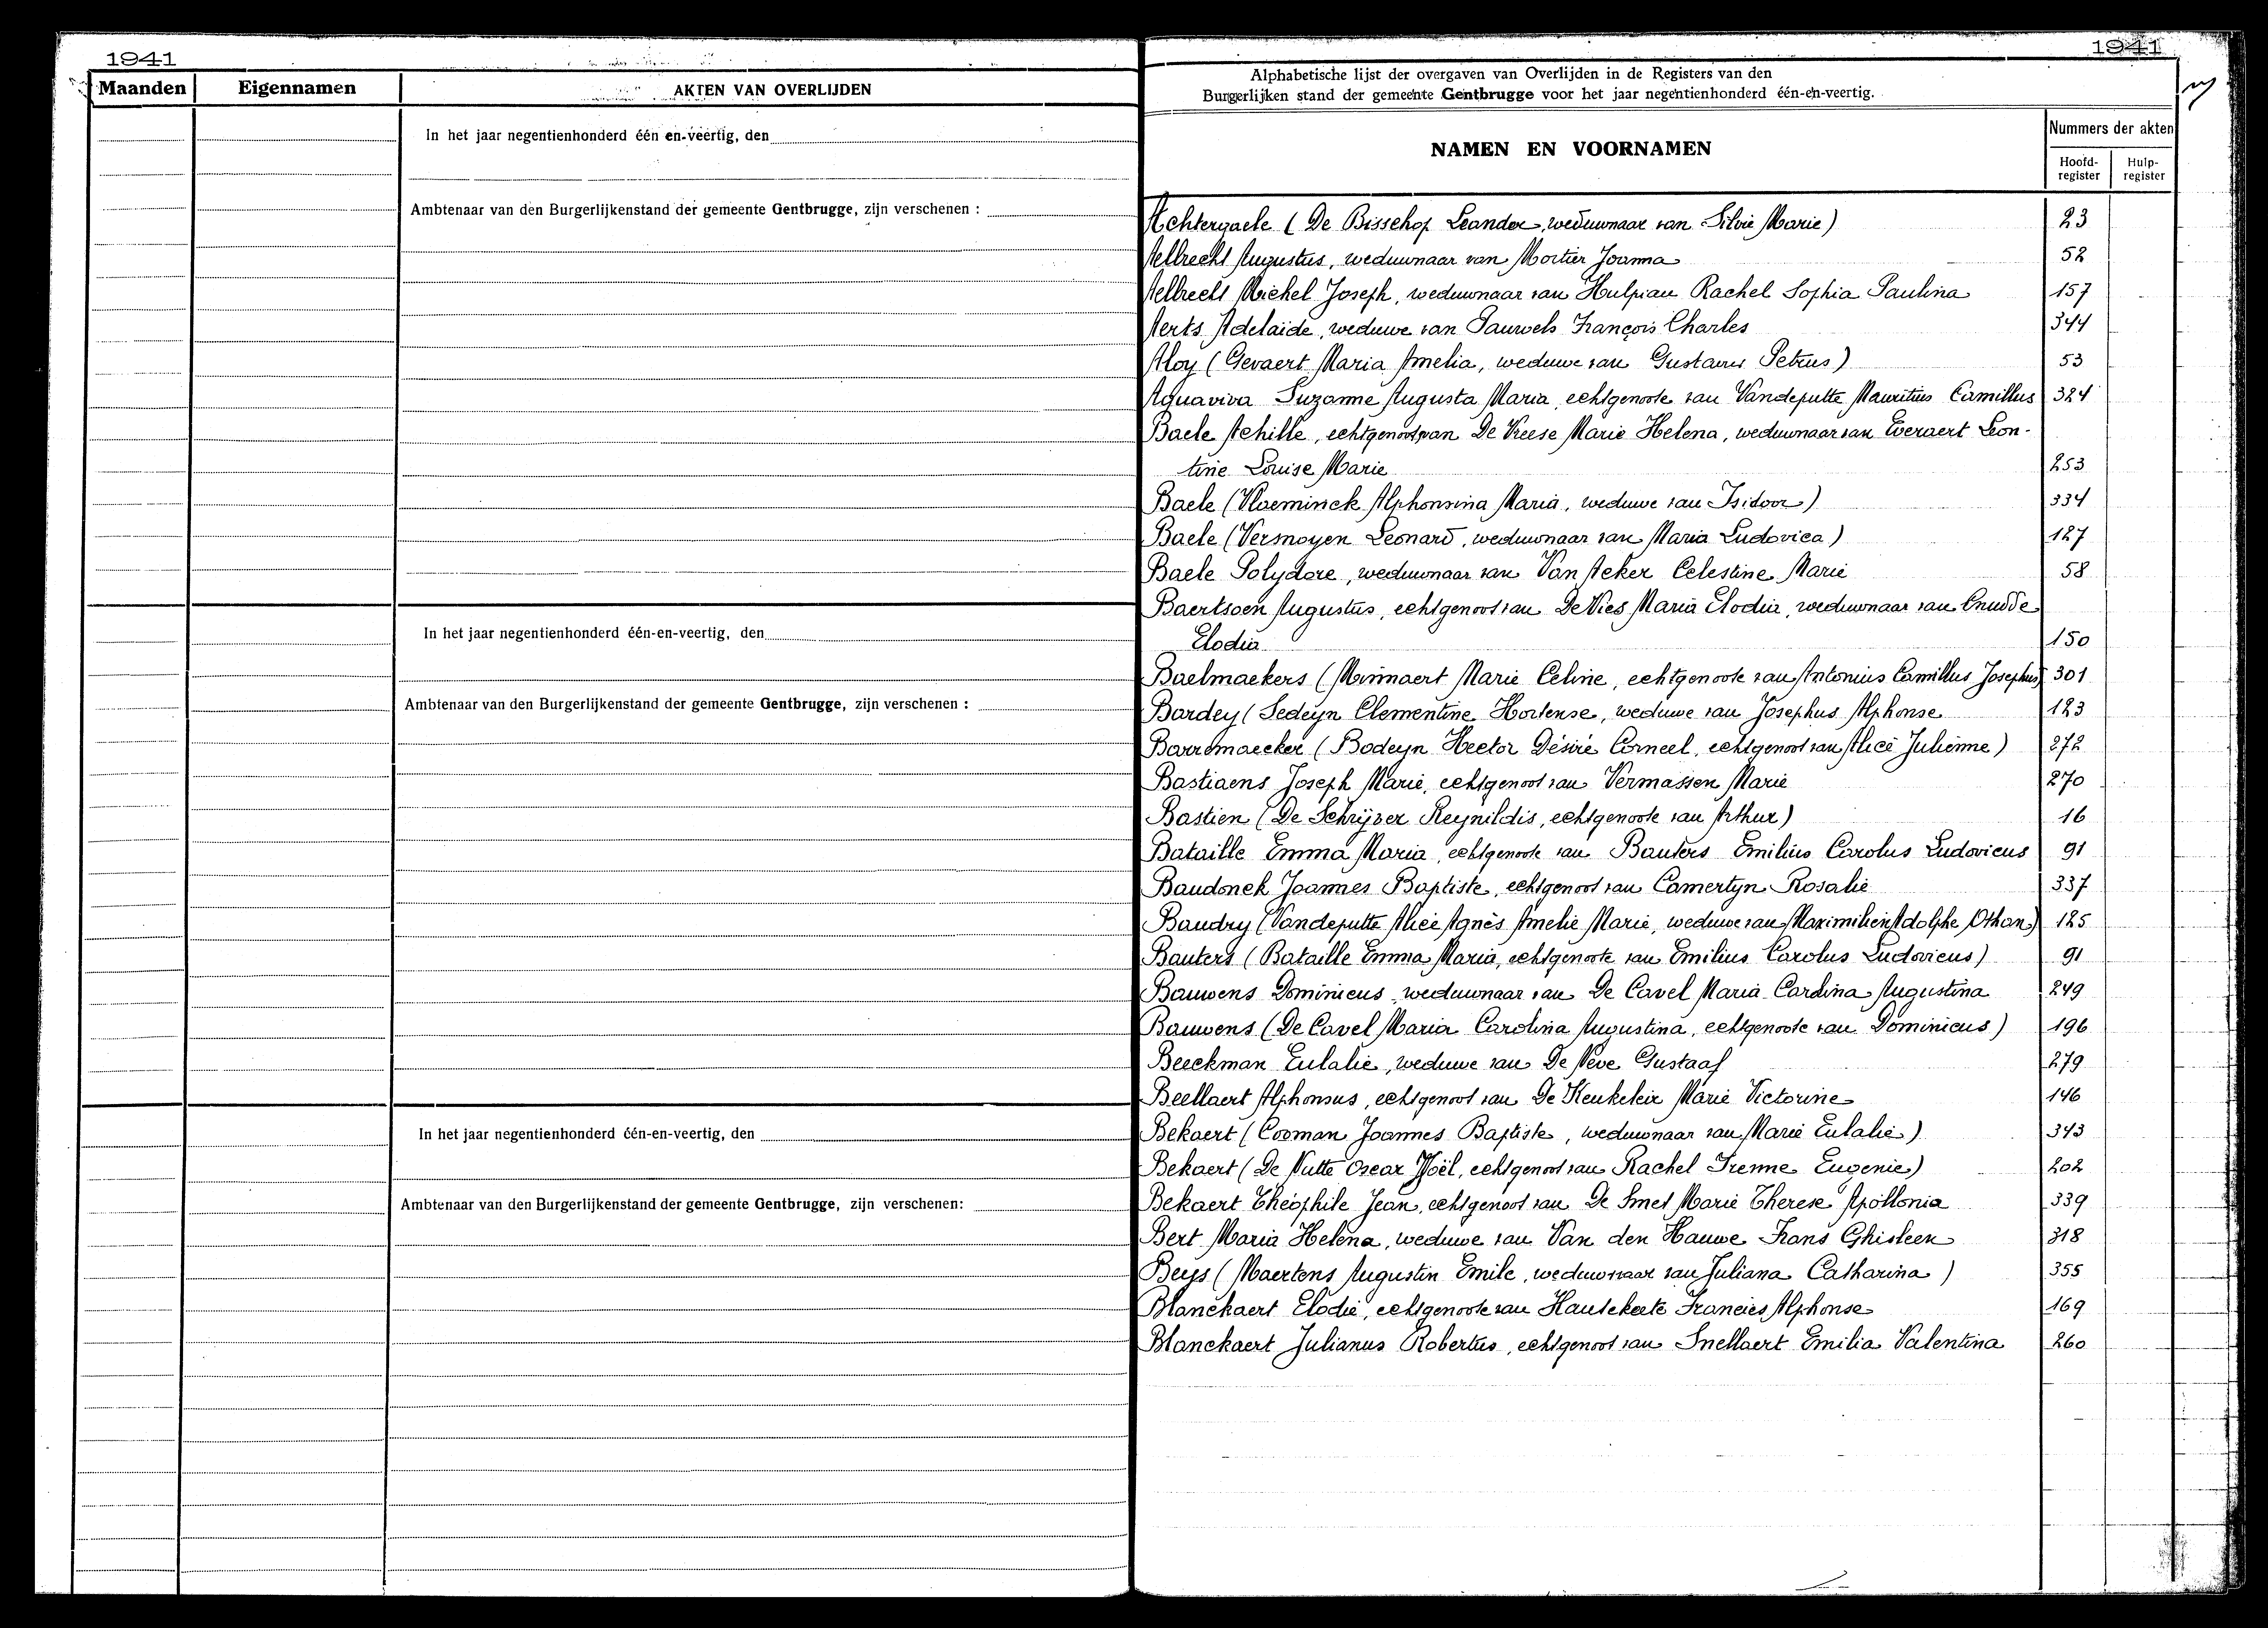 1941
Maanden Eigennamen AKTEN VAN OVERLIJDEN
In het jaar negentienhonderd één en-veertig, den
Ambtenaar van den Burgerlijkenstand der gemeente Gentbrugge, zijn verschenen :
In het jaar negentienhonderd één-en-veertig, den
Ambtenaar van den Burgerlijkenstand der gemeente Gentbrugge, zijn verschenen :
In het jaar negentienhonderd één-en-veertig, den
Ambtenaar van den Burgerlijkenstand der gemeente Gentbrugge, zijn verschenen:
1941
Alphabetische lijst der overgaven van Overlijden in de Registers van den
Burgerlijken stand der gemeente Gentbrugge voor het jaar negentienhonderd één-en-veertig.
NAMEN EN VOORNAMEN
Nummers der akten
Hoofd-register Hulp-register
Achtergaele (De Bisschop Leander, weduwnaar van Silvie Marie) 23
Aelbrecht Augustus, weduwnaar van Mortier Joanna 52
Aelbrecht Michel Joseph, weduwnaar van Hulpiau Rachel Sophia Paulina 157
Aerts Adelaïde, weduwe van Pauwels François Charles 344
Aloy (Gevaert Maria Amelia, weduwe van Gustavus Petrus) 53
Aquaviva Suzanne Augusta Maria, echtgenoote van Vandeputte Mauritius Camillus 324
Baele Achille, echtgenoot van De Vreese Marie Helena, weduwnaar van Everaert Leon-
tine Louise Marie 253
Baele (Vlaeminck Alphonsina Maria, weduwe van Isidoor) 334
Baele (Versnoyen Leonard, weduwnaar van Maria Ludovica) 127
Baele Polydore, weduwnaar van Van Acker Celestine Marie 58
Baertsoen Augustus, echtgenoot van De Vies Maria Elodia, weduwnaar van Cnudde
Elodia 150
Baelmaekers (Minnaert Marie Celine, echtgenoote van Antonius Camillus Josephus) 301
Bardey (Sedeyn Clementine Hortense, weduwe van Josephus Alphonse 123
Barremaecker (Bodeyn Hector Désiré Corneel, echtgenoot van Alice Julienne) 272
Bastiaens Joseph Marie, echtgenoot van Vermassen Marie 270
Bastien (De Schrijver Reynildis, echtgenoote van Arthur) 16
Bataille Emma Maria, echtgenoote van Bauters Emilius Carolus Ludovicus 91
Baudonck Joannes Baptiste, echtgenoot van Camertyn Rosalie 337
Baudry (Vandeputte Alice Agnès Amelie Marie, weduwe van Maximilien Adolphe Othon) 125
Bauters (Bataille Emma Maria, echtgenoote van Emilius Carolus Ludovicus) 91
Bauwens Dominicus, weduwnaar van De Cavel Maria Carolina Augustina 249
Bauwens (De Cavel Maria Carolina Augustina, echtgenoote van Dominicus) 196
Beeckman Eulalie, weduwe van De Neve Gustaaf 279
Beellaert Alphonsus, echtgenoot van De Keukeleir Marie Victorine 146
Bekaert (Cooman Joannes Baptiste, weduwnaar van Marie Eulalie) 343
Bekaert (De Nutte Oscar Noël, echtgenoot van Rachel Irenne Eugenie) 202
Bekaert Théophile Jean, echtgenoot van De Smet Marie Therese Apollonia 339
Bert Maria Helena, weduwe van Van den Hauwe Frans Ghisleen 318
Beys (Maertens Augustin Emile, weduwnaar van Juliana Catharina) 355
Blanckaert Elodie, echtgenoote van Hautekeete Francies Alphonse 169
Blanckaert Julianus Robertus, echtgenoot van Snellaert Emilia Valentina 260